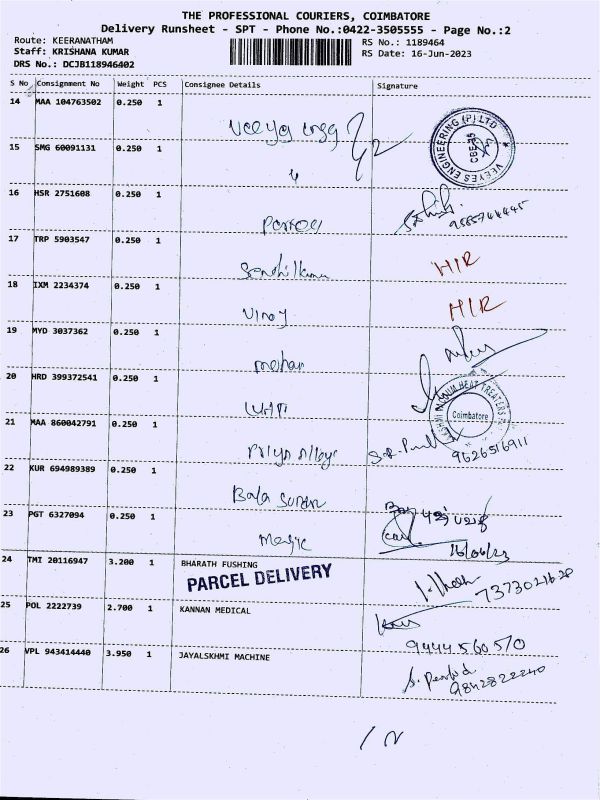 THE PROFESSIONAL COURIERS, COIMBATORE
Delivery Runsheet - SPT - Phone No.:0422-3505555 - Page No.:2
Route: KEERANATHAM RS No.: 1189464
Staff: KRISHANA KUMAR RS Date: 16-Jun-2023
DRS No.: DCJB118946402
S No Consignment No Weight PCS Consignee Details Signature
14 MAA 104763502 0.250 1
VEEYES ENGINEERING (P) LTD
15 SMG 60091131 0.250 1
16 HSR 2751608 0.250 1
17 TRP 5903547 0.250 1
Sendhilkumar HIR
18 IXM 2234374 0.250 1
Vinoy HIR
19 MYD 3037362 0.250 1
mohan
20 HRD 399372541 0.250 1
HEAT TREATERS
Coimbatore
21 MAA 860042791 0.250 1
Priya Alloys 9626516911
22 KUR 694989389 0.250 1
Bala
23 PGT 6327094 0.250 1
Magic 16/06/23
24 TMI 20116947 3.200 1 BHARATH FUSHING
PARCEL DELIVERY
25 POL 2222739 2.700 1 KANNAN MEDICAL
9444560570
26 VPL 943414440 3.950 1 JAYALSKHMI MACHINE
9842822240